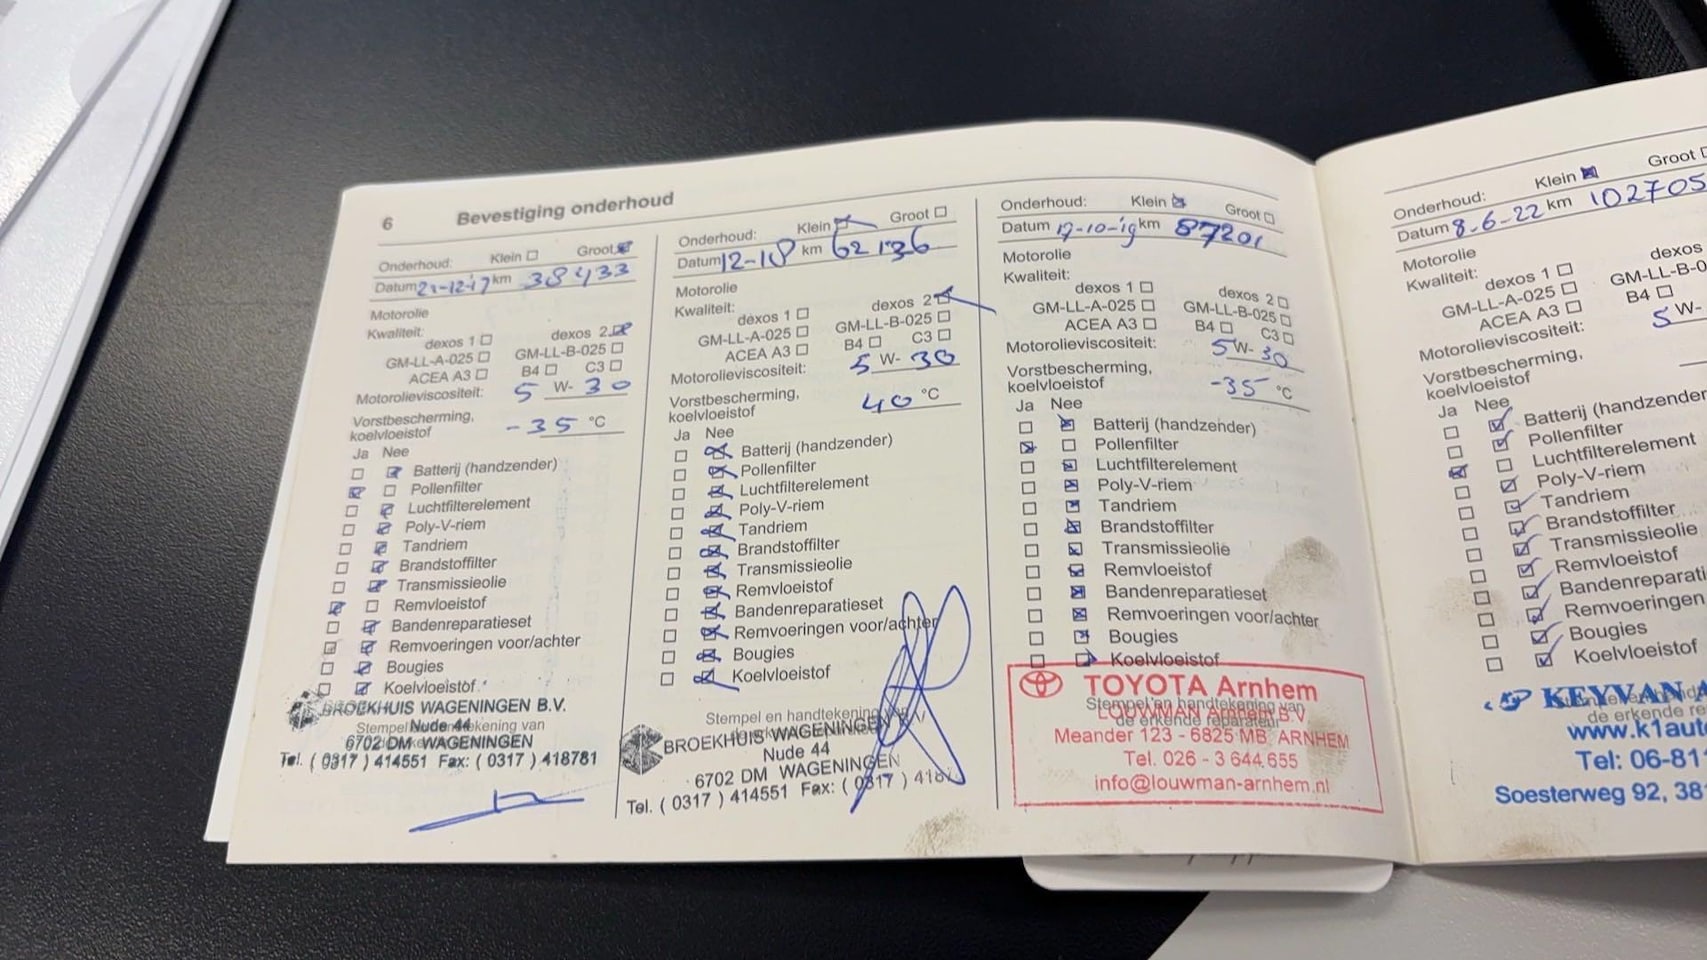 6 Bevestiging onderhoud
Onderhoud: Klein Groot
Datum 21-12-17 km 38433
Motorolie
Kwaliteit:
dexos 1 dexos 2
GM-LL-A-025 GM-LL-B-025
ACEA A3 B4 C3
Motorolieviscositeit: 5 W- 30
Vorstbescherming,
koelvloeistof -35 °C
Ja Nee
Batterij (handzender)
Pollenfilter
Luchtfilterelement
Poly-V-riem
Tandriem
Brandstoffilter
Transmissieolie
Remvloeistof
Bandenreparatieset
Remvoeringen voor/achter
Bougies
Koelvloeistof
BROEKHUIS WAGENINGEN B.V.
Stempel en handtekening van
Nude 44
6702 DM WAGENINGEN
Tel. ( 0317 ) 414551 Fax: ( 0317 ) 418781
Onderhoud: Klein Groot
Datum 12-18 km 62136
Motorolie
Kwaliteit:
dexos 1 dexos 2
GM-LL-A-025 GM-LL-B-025
ACEA A3 B4 C3
Motorolieviscositeit: 5 W- 30
Vorstbescherming,
koelvloeistof 40 °C
Ja Nee
Batterij (handzender)
Pollenfilter
Luchtfilterelement
Poly-V-riem
Tandriem
Brandstoffilter
Transmissieolie
Remvloeistof
Bandenreparatieset
Remvoeringen voor/achter
Bougies
Koelvloeistof
Stempel en handtekening van
BROEKHUIS WAGENINGEN B.V
Nude 44
6702 DM WAGENINGEN
Tel. ( 0317 ) 414551 Fax: ( 0317 )
Onderhoud: Klein Groot
Datum 17-10-19 km 87201
Motorolie
Kwaliteit:
dexos 1 dexos 2
GM-LL-A-025 GM-LL-B-025
ACEA A3 B4 C3
Motorolieviscositeit: 5 W- 30
Vorstbescherming,
koelvloeistof -35 °C
Ja Nee
Batterij (handzender)
Pollenfilter
Luchtfilterelement
Poly-V-riem
Tandriem
Brandstoffilter
Transmissieolie
Remvloeistof
Bandenreparatieset
Remvoeringen voor/achter
Bougies
Koelvloeistof
TOYOTA Arnhem
Stempel en handtekening van
LOUWMAN Arnhem B.V
de erkende reparateur
Meander 123 - 6825 MB ARNHEM
Tel. 026 - 3 644 655
info@louwman-arnhem.nl
Onderhoud: Klein Groot
Datum 8-6-22 km 102705
Motorolie
Kwaliteit:
dexos 1 dexos
GM-LL-A-025 GM-LL-B-0
ACEA A3 B4
Motorolieviscositeit: 5 W-
Vorstbescherming,
koelvloeistof
Ja Nee
Batterij (handzender
Pollenfilter
Luchtfilterelement
Poly-V-riem
Tandriem
Brandstoffilter
Transmissieolie
Remvloeistof
Bandenreparati
Remvoeringen
Bougies
Koelvloeistof
KEYVAN A
de erkende re
www.k1aut
Tel: 06-81
Soesterweg 92, 38